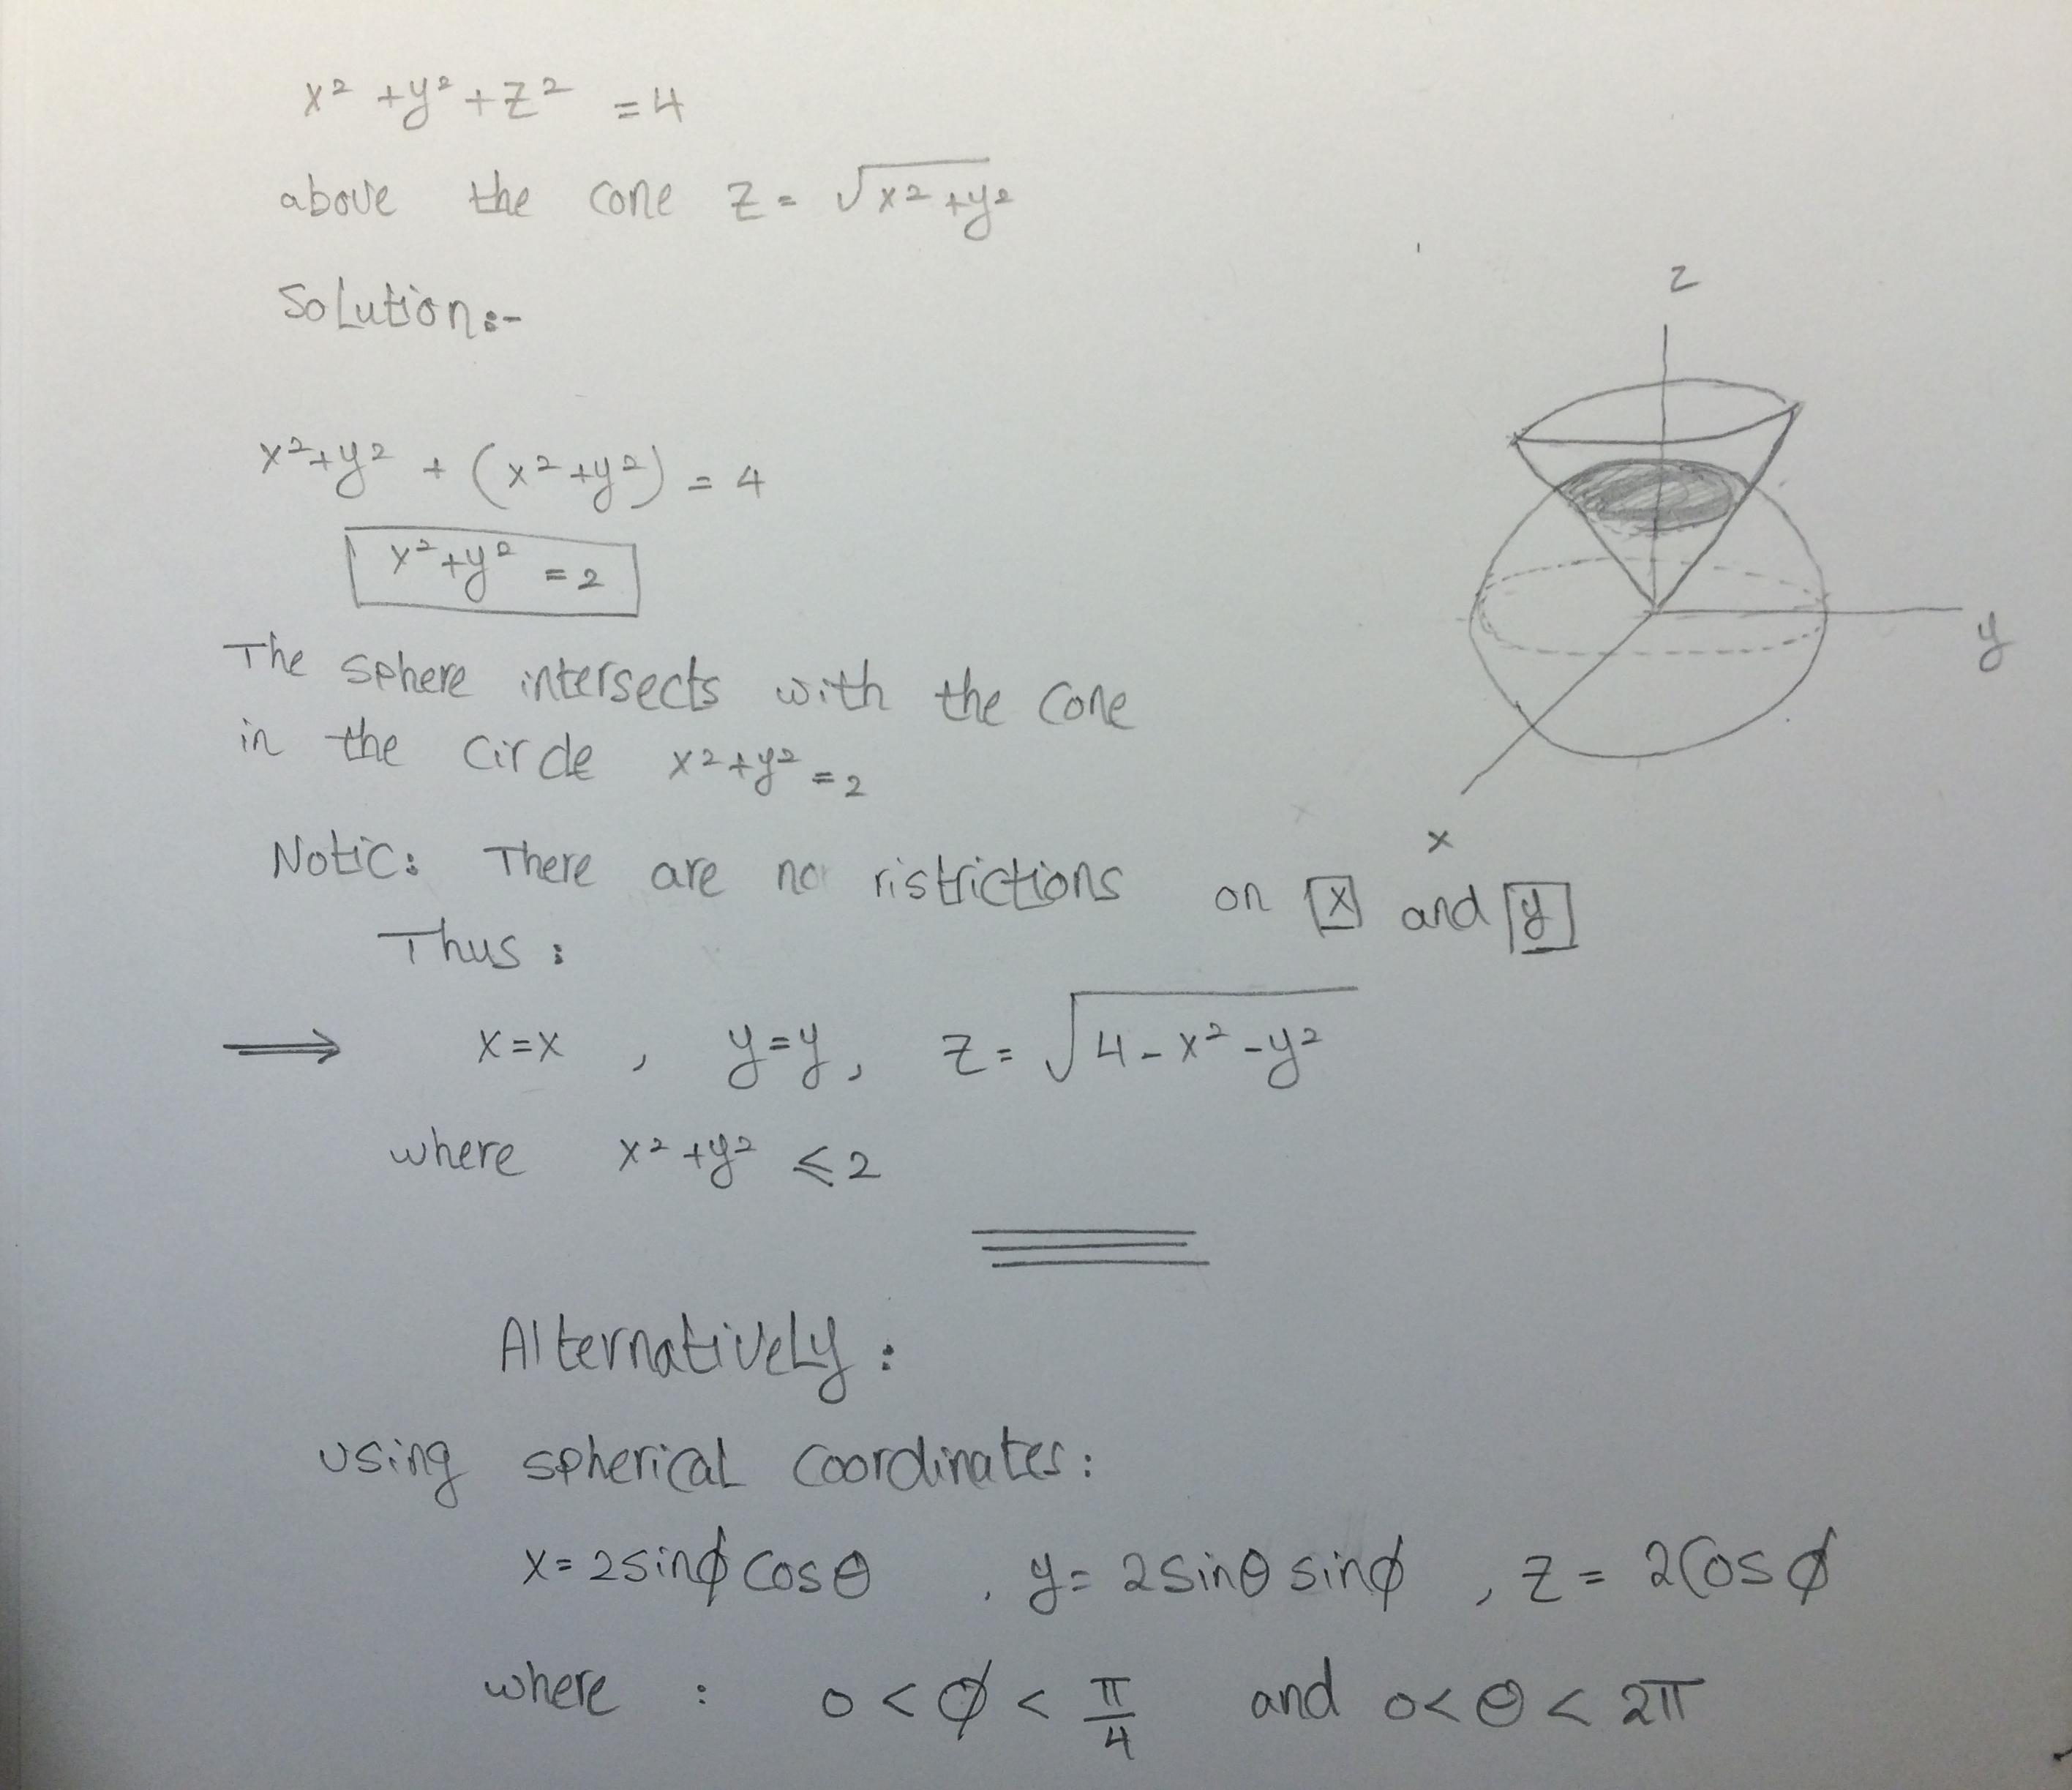 x² + y² + z² = 4
above the cone z = √x² + y²
Solution:-
x² + y² + (x² + y²) = 4
x² + y² = 2
The sphere intersects with the cone
in the circle x² + y² = 2
z
y
x
Notic: There are no ristrictions on x and y
Thus:
⟹ x = x , y = y, z = √4 - x² - y²
where x² + y² ⩽ 2
Alternatively:
using spherical coordinates:
x = 2 sinϕ cosθ , y = 2 sinθ sinϕ , z = 2 cos ϕ
where : 0 < ϕ < π/4 and 0 < θ < 2π